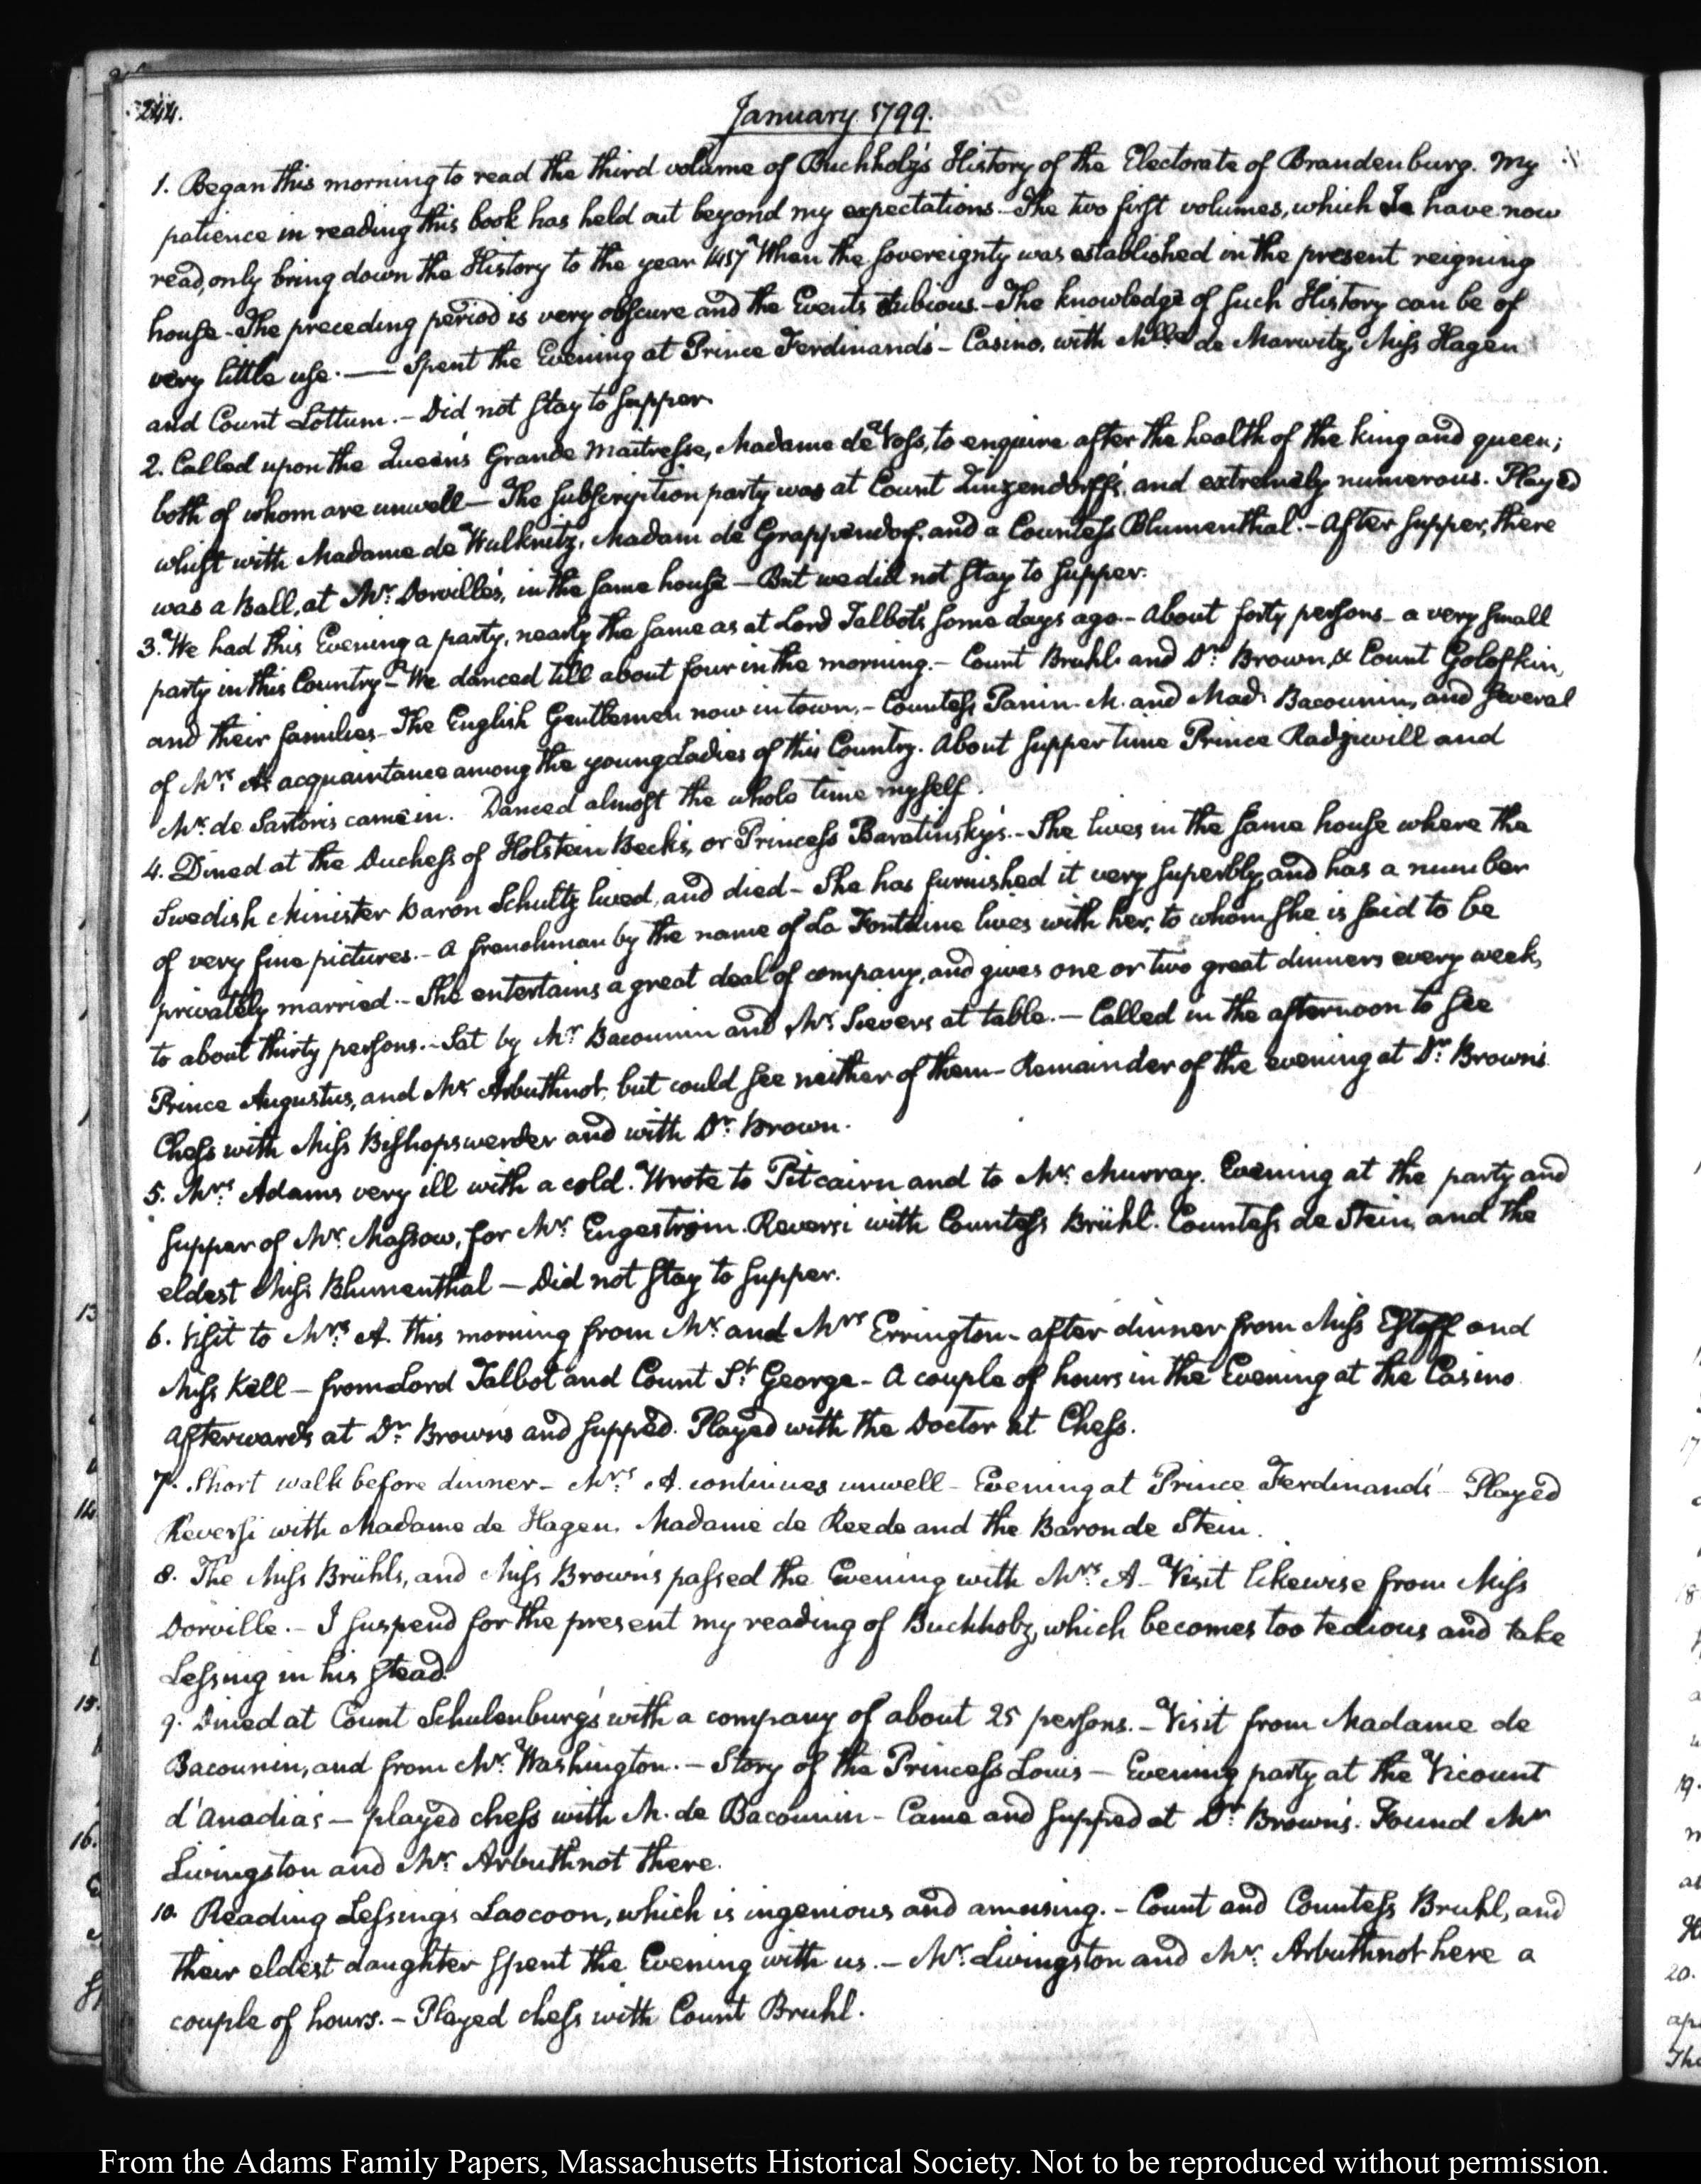 244.
January 1799.
1. Began this morning to read the third volume of Buchholz's History of the Electorate of Brandenburg. My
patience in reading this book has held out beyond my expectations. The two first volumes, which I have now
read, only bring down the History to the year 1417 When the sovereignty was established in the present reigning
house. The preceding period is very obscure and the Events dubious. The knowledge of such History can be of
very little use. — Spent the Evening at Prince Ferdinand's — Casino, with Mlle. de Marwitz, Miss Hagen
and Count Lottum. — Did not stay to supper.
2. Called upon the Queen's Grande Maitresse, Madame de Voss, to enquire after the health of the king and queen;
both of whom are unwell — The subscription party was at Count Zinzendorff's, and extremely numerous. Played
whist with Madame de Wulknitz, Madam de Grappendorf, and a Countess Blumenthal. — After supper, there
was a Ball, at Mr. Dorville's, in the same house — But we did not stay to supper.
3. We had this Evening a party, nearly the same as at Lord Talbot's some days ago — About forty persons — a very small
party in this Country — We danced till about four in the morning. — Count Bruhl and Dr. Brown, & Count Golofkin,
and their families — The English Gentlemen now in town, — Countess Panin — M. and Mad. Bacounin, and several
of Mrs. A's acquaintance among the young Ladies of this Country. About supper time Prince Radziwill and
Mr. de Sartoris came in. Danced almost the whole time myself.
4. Dined at the Duchess of Holstein Beck's, or Princess Baratinsky's. — She lives in the same house where the
Swedish Minister Baron Schultz lived, and died — She has furnished it very superbly, and has a number
of very fine pictures. — A frenchman by the name of La Fontaine lives with her, to whom she is said to be
privately married. — She entertains a great deal of company, and gives one or two great dinners every week,
to about thirty persons. — Sat by Mr. Bacounin and Mr. Sievers at table. — Called in the afternoon to see
Prince Augustus, and Mr. Arbuthnot, but could see neither of them — Remainder of the evening at Dr. Brown's.
Chess with Miss Bishopswerder and with Dr. Brown.
5. Mrs. Adams very ill with a cold. Wrote to Pitcairn and to Mr. Murray. Evening at the party and
supper of Mr. Massow, for Mr. Engeström. Reversi with Countess Brühl. Countess de Stein, and the
eldest Miss Blumenthal — Did not stay to supper.
6. Visit to Mrs. A. this morning from Mr. and Mrs. Errington — after dinner from Miss Estoff and
Miss Kell — from Lord Talbot and Count St. George — A couple of hours in the Evening at the Casino
Afterwards at Dr. Browns and supped. Played with the Doctor at Chess.
7. Short walk before dinner — Mrs. A. continues unwell — Evening at Prince Ferdinand's — Played
Reversi with Madame de Hagen, Madame de Reede and the Baron de Stein.
8. The Miss Brühls, and Miss Brown's passed the Evening with Mrs. A — Visit likewise from Miss
Dorville. — I suspend for the present my reading of Buchholz, which becomes too tedious and take
Lessing in his stead.
9. Dined at Count Schulenburg's with a company of about 25 persons. — Visit from Madame de
Bacounin, and from Mr. Washington. — Story of the Princess Louis — Evening party at the Vicount
d'Anadia's — played chess with M. de Bacounin — Came and supped at Dr. Brown's. Found Mr.
Livingston and Mr. Arbuthnot there.
10. Reading Lessing's Laocoon, which is ingenious and amusing. — Count and Countess Bruhl, and
their eldest daughter spent the Evening with us. — Mr. Livingston and Mr. Arbuthnot here a
couple of hours. — Played chess with Count Bruhl.
From the Adams Family Papers, Massachusetts Historical Society. Not to be reproduced without permission.